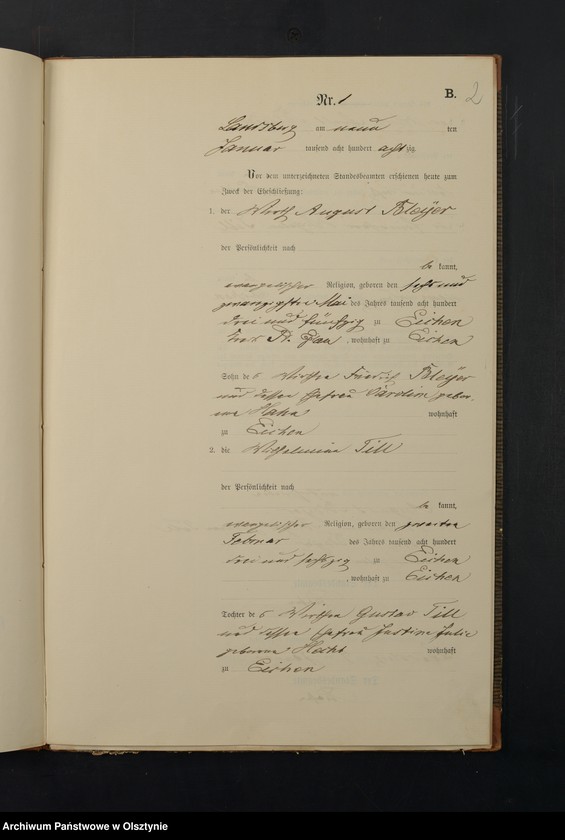 Nr. 1
B.
2
Landsberg am neun ten
Januar tausend acht hundert achtzig.
Vor dem unterzeichneten Standesbeamten erschienen heute zum
Zweck der Eheschließung:
1. der Wirth August Bleyer
der Persönlichkeit nach
be kannt,
evangelischer Religion, geboren den sechs und
zwanzigsten Mai des Jahres tausend acht hundert
drei und fünfzig zu Eichen
Kreis Pr. Eylau, wohnhaft zu Eichen
Sohn des Wirthen Friedrich Bleyer
und dessen Ehefrau Caroline gebor-
ne Hahn wohnhaft
zu Eichen
2. die Wilhelmine Till
der Persönlichkeit nach
be kannt,
evangelischer Religion, geboren den zweiten
Februar des Jahres tausend acht hundert
drei und sechszig zu Eichen
, wohnhaft zu Eichen
Tochter des Wirthen Gustav Till
und dessen Ehefrau Justine Julie
geborene Hecht wohnhaft
zu Eichen
Archiwum Państwowe w Olsztynie